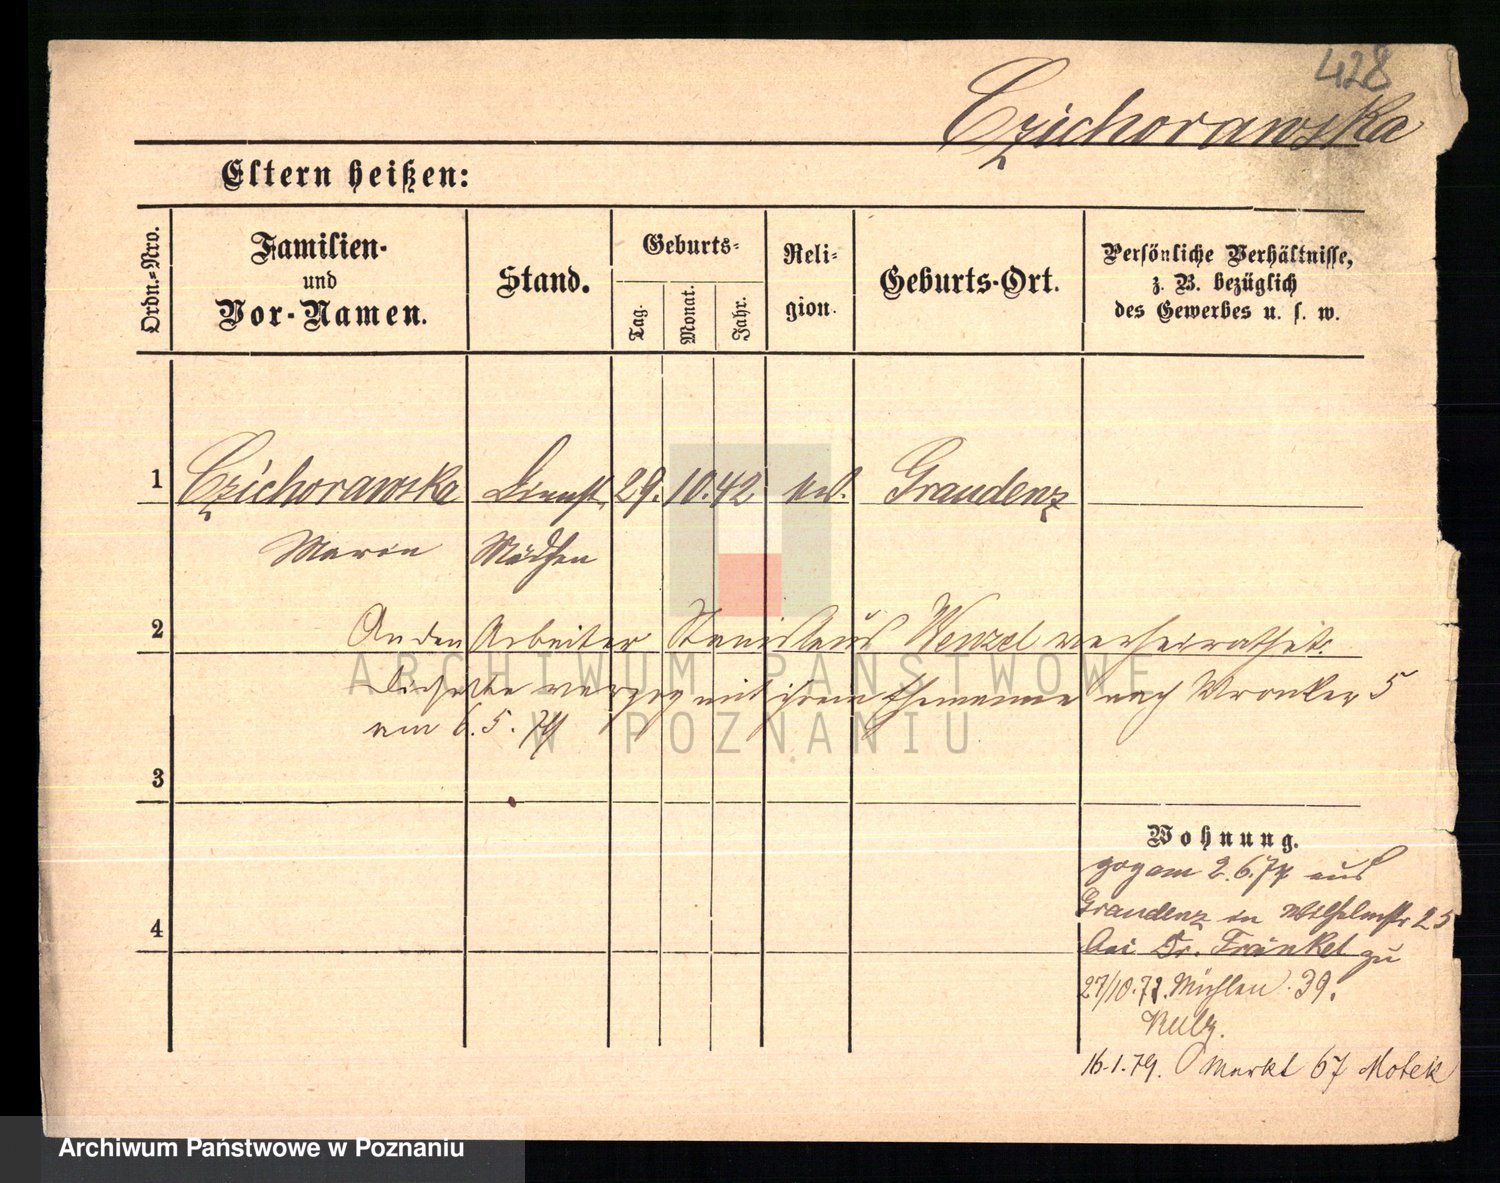 428
Czichorawska
Eltern heißen:
Ordn.=Nro.
Familien-
und
Vor-Namen.
Stand.
Geburts=
Tag.
Monat.
Jahr.
Reli-
gion.
Geburts-Ort.
Persönliche Verhältnisse,
z. B. bezüglich
des Gewerbes u. s. w.
1 Czichorawska Dienst 29. 10. 42 Graudenz
Marie Mädchen
2 An den Arbeiter Stanislaus Wenzel verheirathet.
Dieselbe verzog mit ihrem Ehemanne nach Wronker 5
am 6.5.79
3
Wohnung.
zog am 2.6.77 aus
Graudenz in Wilhelmstr 25
4
bei Dr. Fränkel zu
27/10.78. Mühlen 39.
16.1.79. O Markt 67 Motek
ARCHIWUM PAŃSTWOWE
W POZNANIU
Archiwum Państwowe w Poznaniu